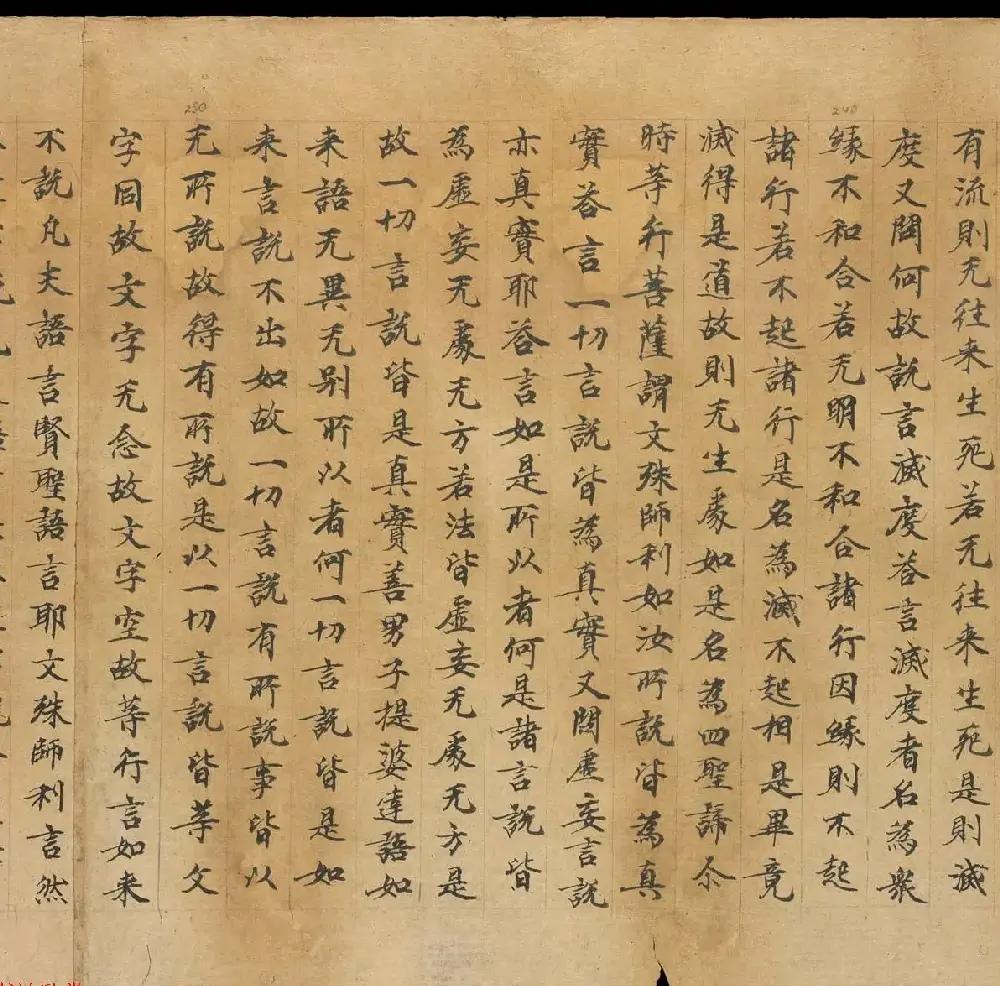 有流則无往来生死若无往来生死是則滅
度又問何故説言滅度荅言滅度者名為衆
縁不和合若无明不和合諸行因縁則不起
諸行若不起諸行是名為滅不起相是畢竟
滅得是道故則无生處如是名為四聖諦尒
時等行菩薩謂文殊師利如汝所説皆為真
實荅言一切言説皆為真實又問虚妄言説
亦真實耶荅言如是所以者何是諸言説皆
為虚妄无處无方若法皆虚妄无處无方是
故一切言説皆是真實善男子提婆達語如
来語无異无别所以者何一切言説皆是如
来言説不出如故一切言説有所説事皆以
无所説故得有所説是以一切言説皆等文
字同故文字无念故文字空故等行言如来
不説凡夫語言賢聖語言耶文殊師利言然